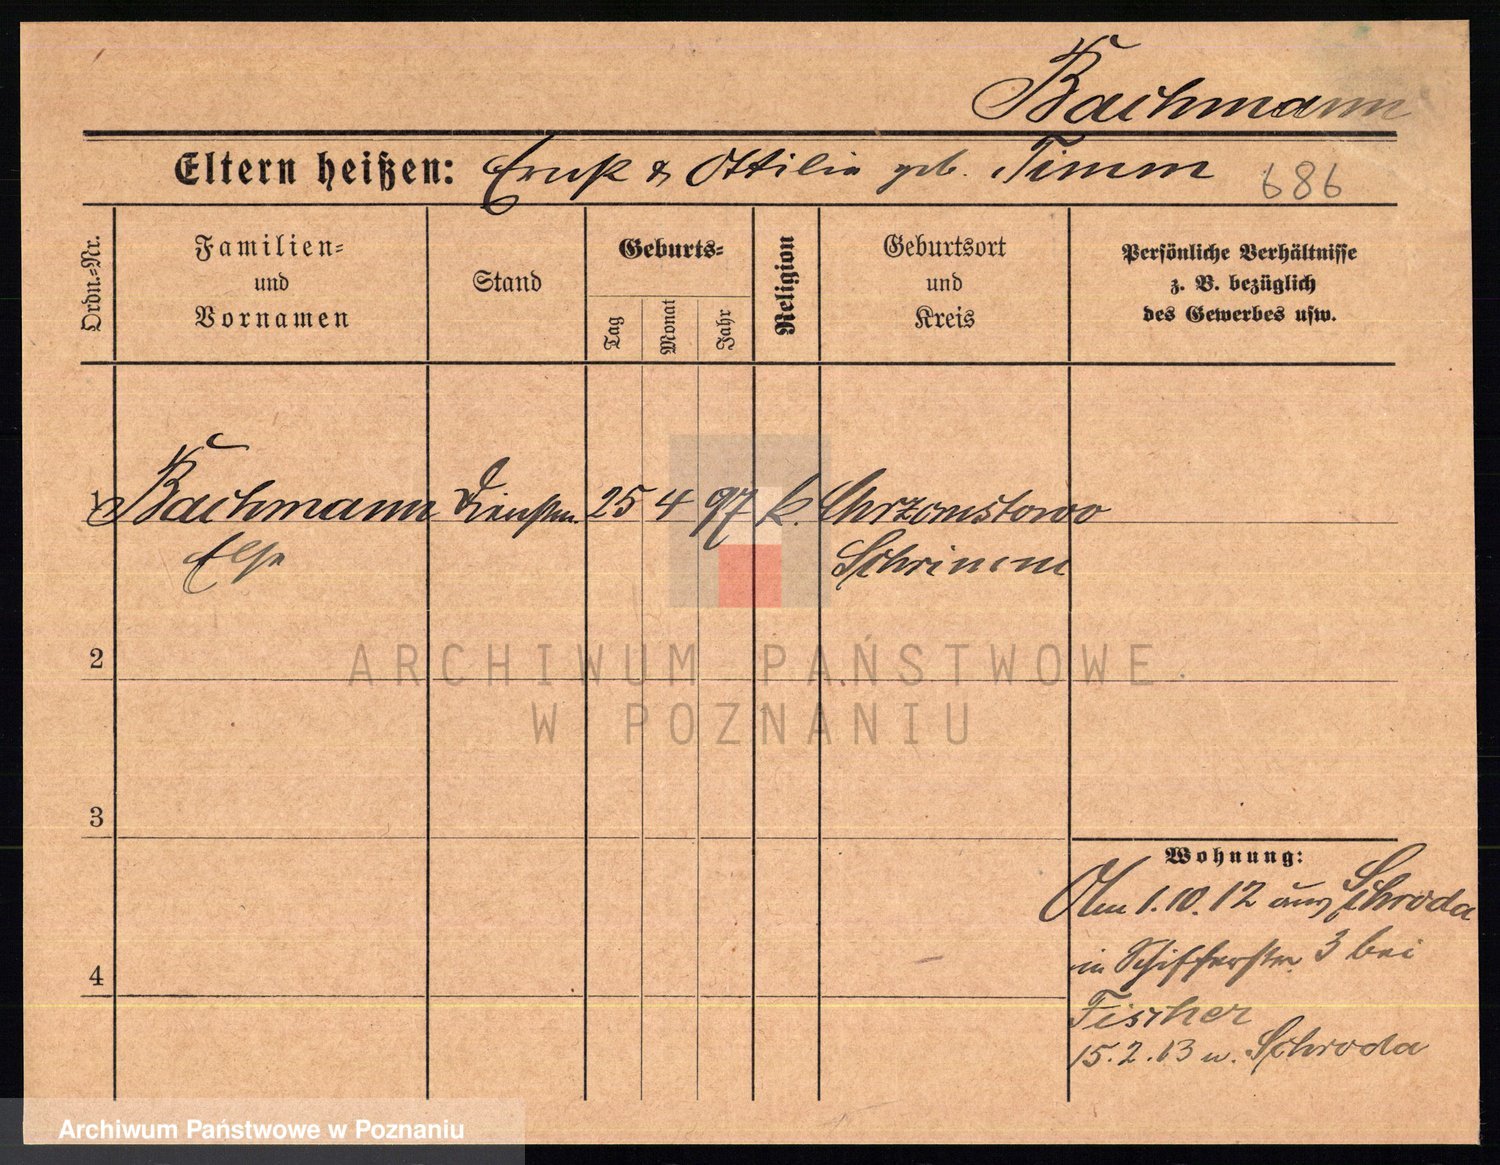 Bachmann
Eltern heißen: Ernst & Ottilie geb. Timm 686
Ordn.-Nr.
Familien-
und
Vornamen
Stand
Geburts-
Tag
Monat
Jahr
Religion
Geburtsort
und
Kreis
Persönliche Verhältnisse
z. B. bezüglich
des Gewerbes usw.
1 Bachmann Dienstm. 25 4 97 k. Chrzonstowo
Else Schrimm
2
ARCHIWUM PAŃSTWOWE
W POZNANIU
3
Wohnung:
Am 1.10.12 aus Schroda
in Schifferstr. 3 bei
4
Fischer
15.2.13 n. Schroda
Archiwum Państwowe w Poznaniu